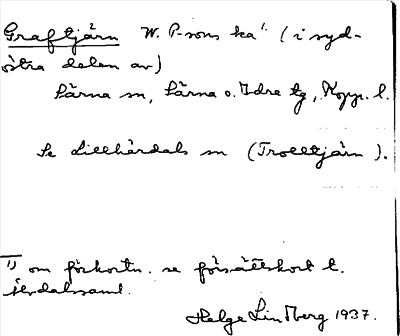 Graftjärn W. P-sons ka¹⁾ (i syd-
östra delen av)
Särna sn, Särna o. Idre tg, Kopp. l.
Se Lillhärdals sn (Trolltjärn).
1) om förkortn. se försättskort t.
Älvdalssaml.
Helge Lindberg 1937.